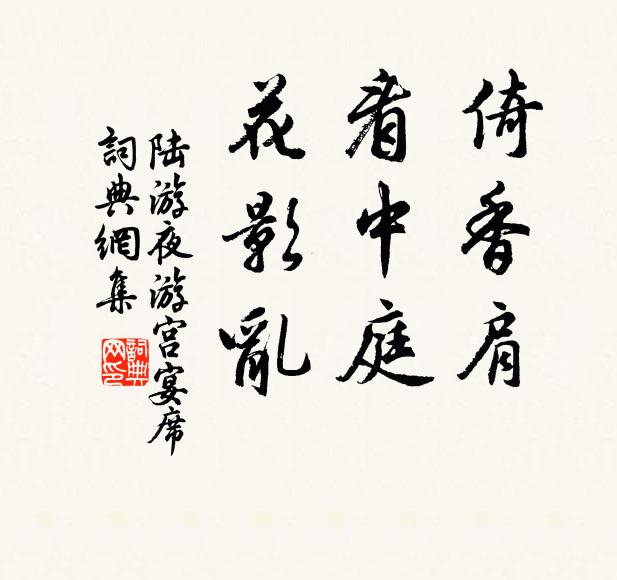 倚香肩
看中庭
花影亂
陆游夜游宫宴席
詞典網集
詞典
网印